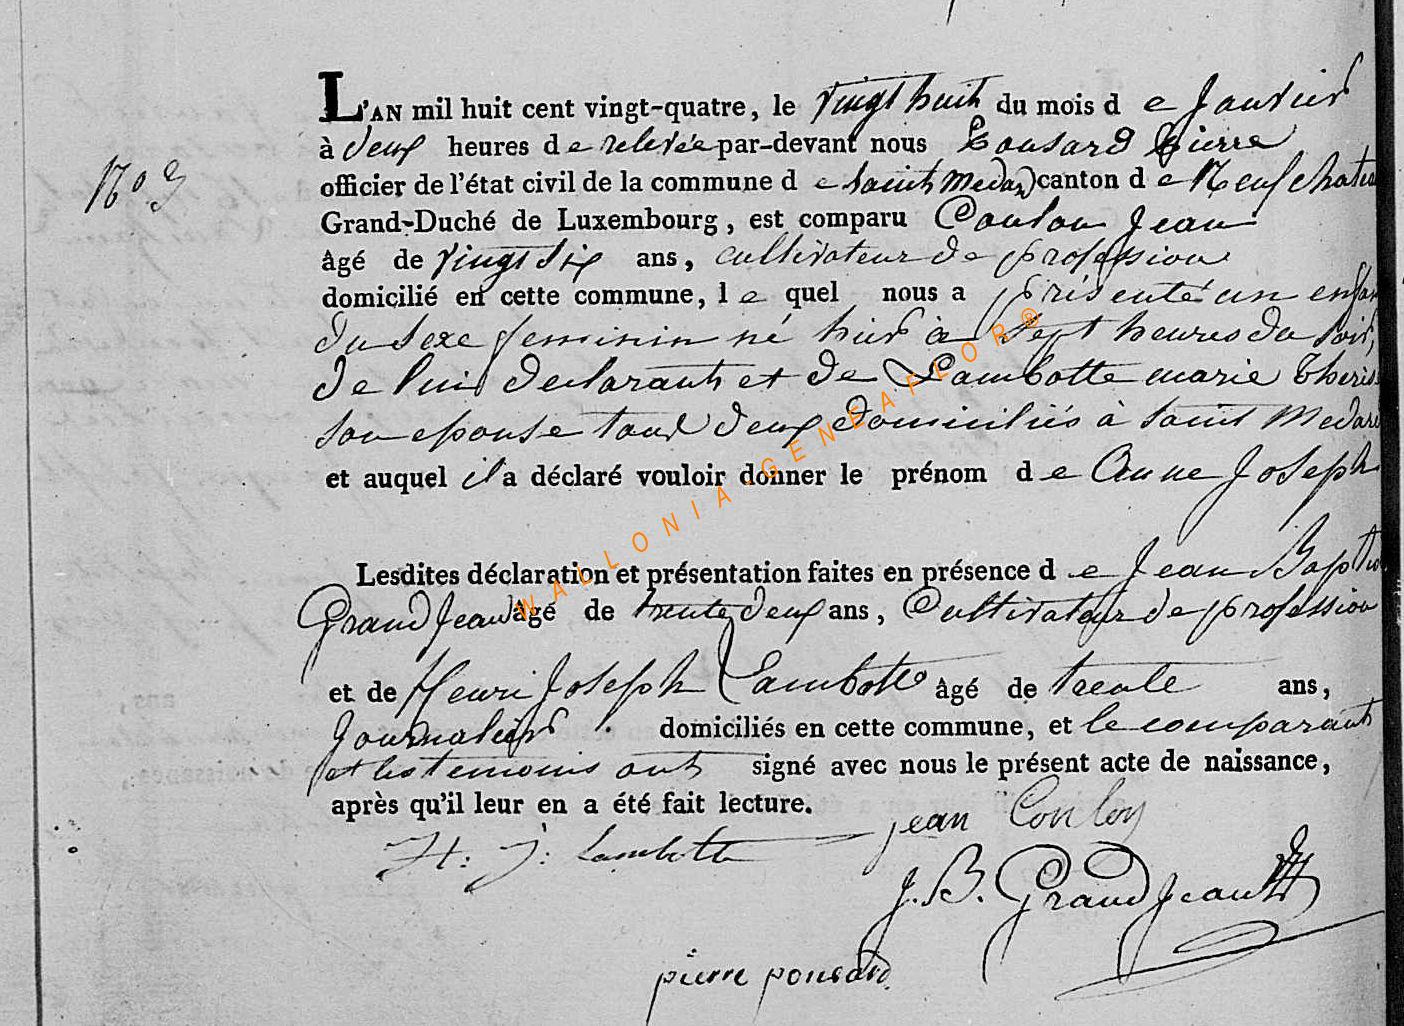 L'AN mil huit cent vingt-quatre, le vingt huit du mois de Janvier
N° 3
à deux heures de relevée par-devant nous Pousard Pierre
officier de l'état civil de la commune de Saint Medard canton de Neufchateau
Grand-Duché de Luxembourg, est comparu Coulon Jean
âgé de vingt six ans, cultivateur de profession
domicilié en cette commune, lequel nous a présenté un enfan
du sexe feminin né hier à sept heures du soir,
de lui declarant et de Lambotte marie Theris
son epouse tous deux domiciliés à saint Medard
et auquel il a déclaré vouloir donner le prénom de Anne Joseph
Lesdites déclaration et présentation faites en présence de Jean Baptis
GrandJean âgé de trente deux ans, Cultivateur de profession
et de Henri Joseph Lambotte âgé de trente ans,
Journalier domiciliés en cette commune, et le comparant
et les temoins ont signé avec nous le présent acte de naissance,
après qu'il leur en a été fait lecture.
jean Coulon
H: J: Lambotte
J. B. GrandJean
pierre pousard
WALLONIA-GENEAFLOR®